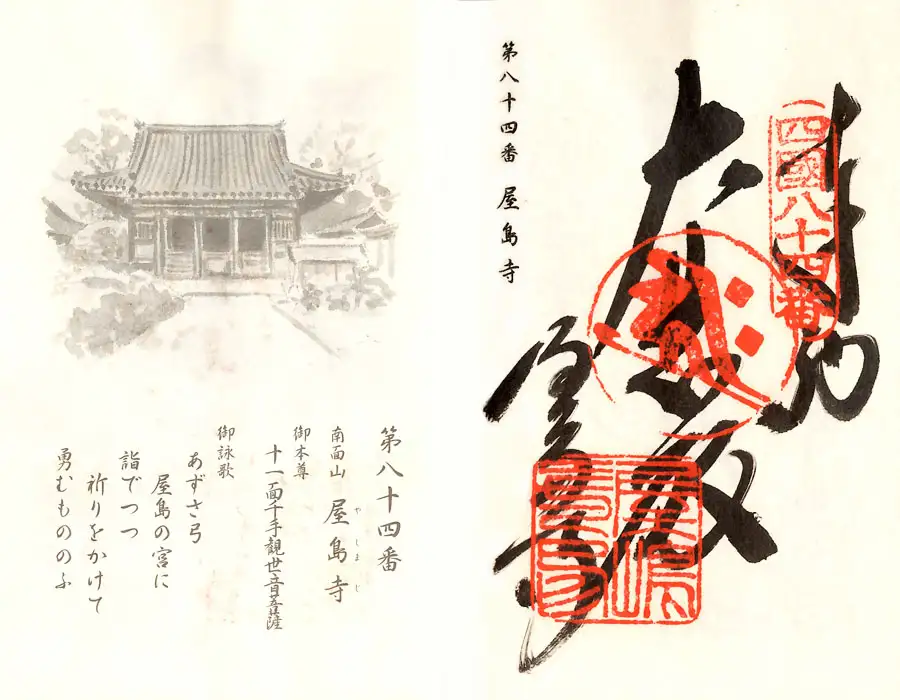 奉納
四國八十四番
大悲殿
屋島寺
第八十四番 屋島寺
第八十四番
南面山 屋島寺
やしまじ
御本尊
十一面千手観世音菩薩
御詠歌
あずさ弓
屋島の宮に
詣でつつ
祈りをかけて
勇むもののふ